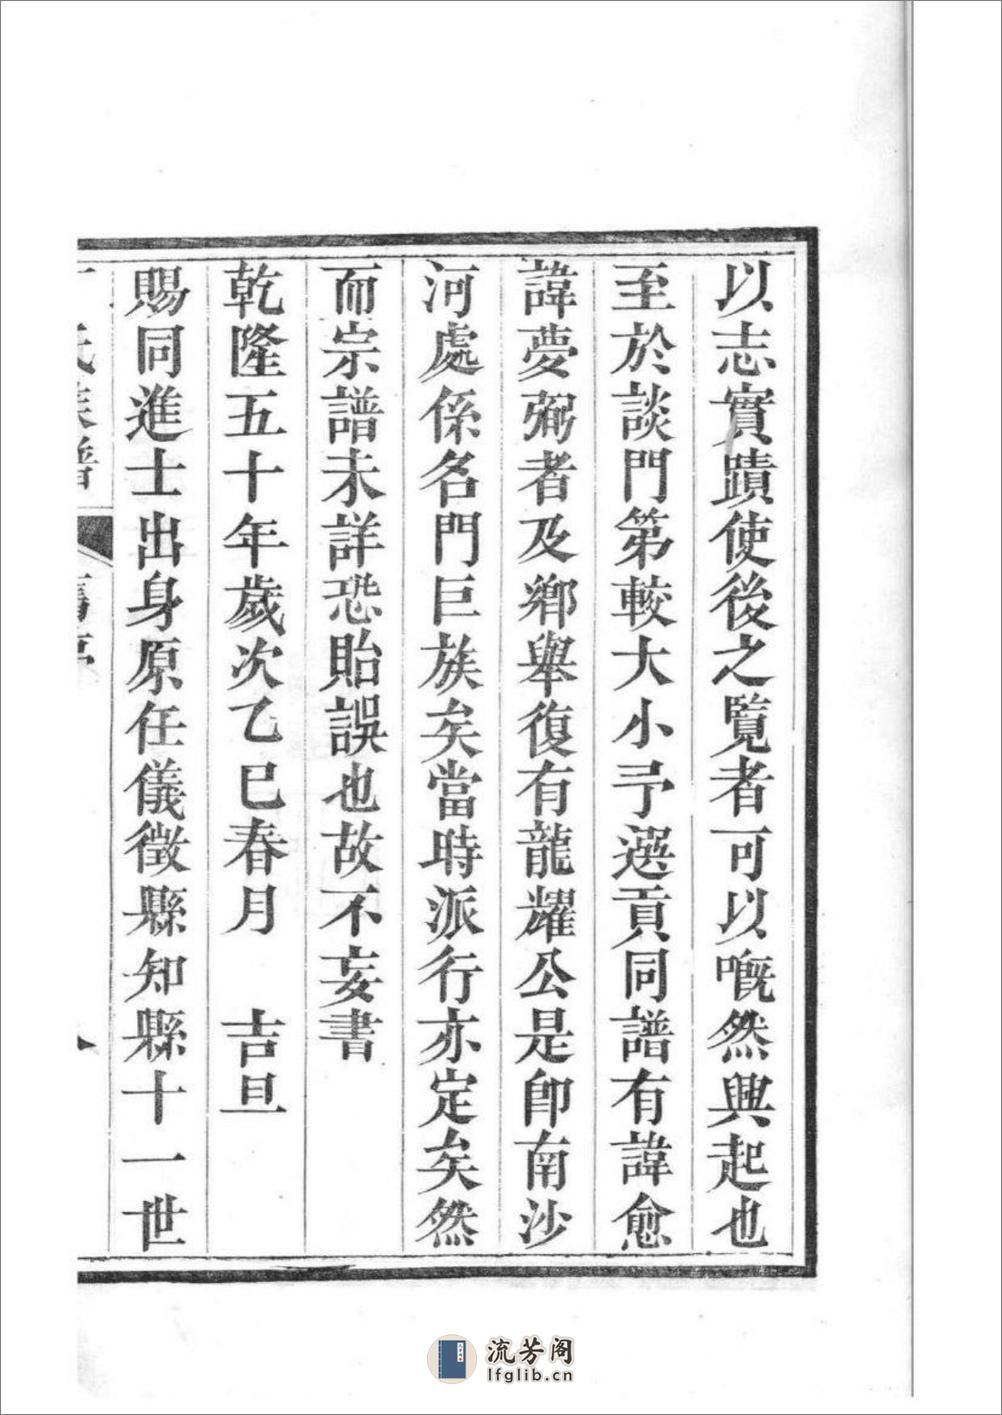 以志實蹟使後之覽者可以嘅然興起也
至於談門第較大小予選貢同譜有諱愈
諱夢弼者及鄉舉復有龍耀公是即南沙
河處係名門巨族矣當時派行亦定矣然
而宗譜未詳恐貽誤也故不妄書
乾隆五十年歲次乙巳春月　吉旦
賜同進士出身原任儀徵縣知縣十一世
氏族譜
流芳阁
lfglib.cn